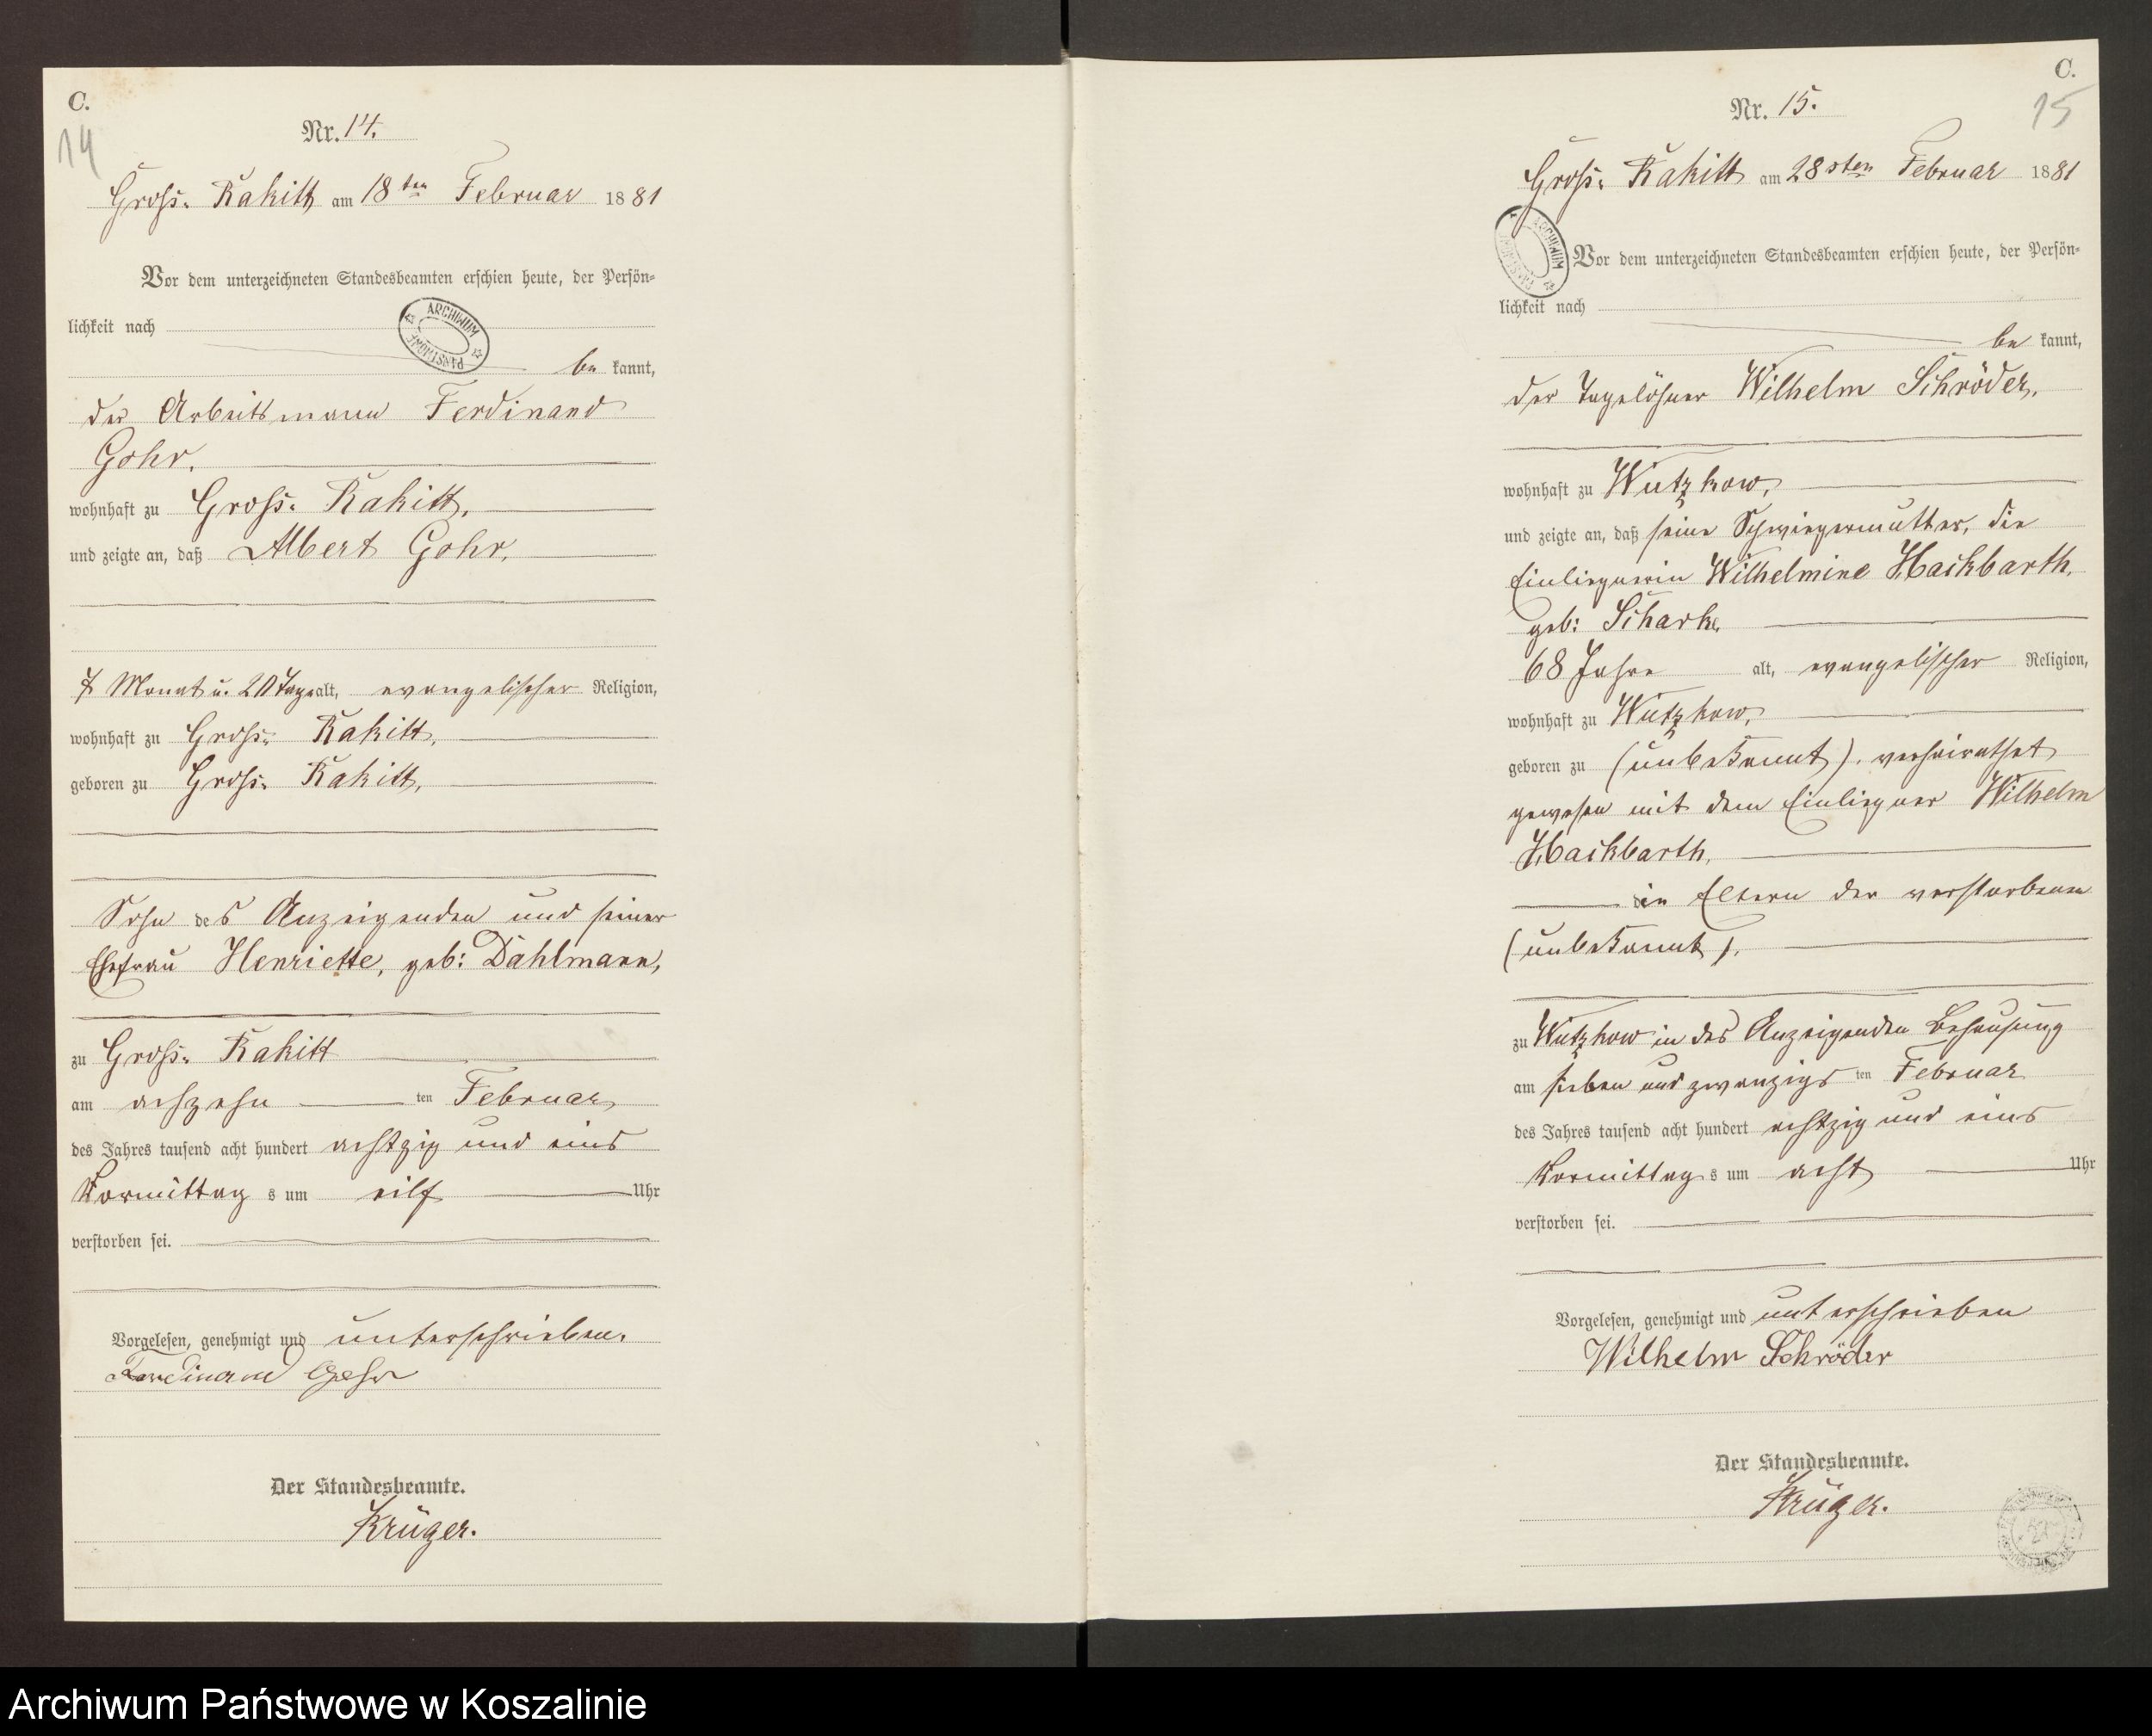 C.
14
Nr. 14.
Gross-Rakitt am 18ten Februar 1881
Vor dem unterzeichneten Standesbeamten erschien heute, der Persön-
lichkeit nach
be kannt,
der Arbeitsmann Ferdinand
Gohr,
wohnhaft zu Gross-Rakitt,
und zeigte an, daß Albert Gohr,
Monat u. Tage alt, evangelischer Religion,
wohnhaft zu Gross-Rakitt,
geboren zu Gross-Rakitt,
Sohn des Anzeigenden und seiner
Ehefrau Henriette, geb: Dahlmann,
zu Gross-Rakitt
am achzehn ten Februar
des Jahres tausend acht hundert achtzig und eins
Vormittag s um eilf Uhr
verstorben sei.
Vorgelesen, genehmigt und unterschrieben.
Ferdinand Gohr
Der Standesbeamte.
Krüger.
C.
15
Nr. 15.
Gross-Rakitt am 28sten Februar 1881
Vor dem unterzeichneten Standesbeamten erschien heute, der Persön-
lichkeit nach
be kannt,
der Tagelöhner Wilhelm Schröder,
wohnhaft zu Wutzkow,
und zeigte an, daß seine Schwiegermutter, die
Einliegerin Wilhelmine Hackbarth,
geb: Schark,
68 Jahre alt, evangelischer Religion,
wohnhaft zu Wutzkow,
geboren zu (unbekannt), verheirathet
gewesen mit dem Einlieger Wilhelm
Hackbarth,
die Eltern der verstorbenen
(unbekannt),
zu Wutzkow in des Anzeigenden Behausung
am sieben und zwanzigs ten Februar
des Jahres tausend acht hundert achtzig und eins
Vormittag s um acht Uhr
verstorben sei.
Vorgelesen, genehmigt und unterschrieben
Wilhelm Schröder
Der Standesbeamte.
Krüger.
ARCHIWUM PAŃSTWOWE
Archiwum Państwowe w Koszalinie